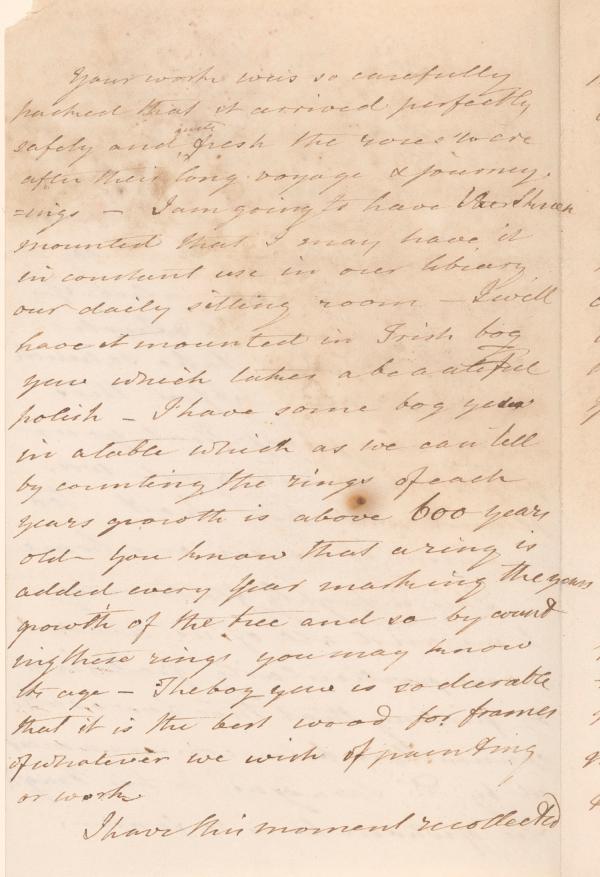 Your work was so carefully
packed that it arrived perfectly
safely and quite fresh the roses were
after their long voyage & journey.
=ings – I am going to have
mounted that I may have it
in constant use in our library
our daily sitting room – I will
have it mounted in Irish bog
yew which takes a beautiful
polish – I have some bog yew
in a table which as we can tell
by counting the rings of each
years growth is above 600 years
old – you know that a ring is
added every year marking the years
growth of the tree and so by count
ing these rings you may know
its age – The bog yew is so durable
that it is the best wood for frames
of whatever we wish of painting
or work
I have this moment recollected